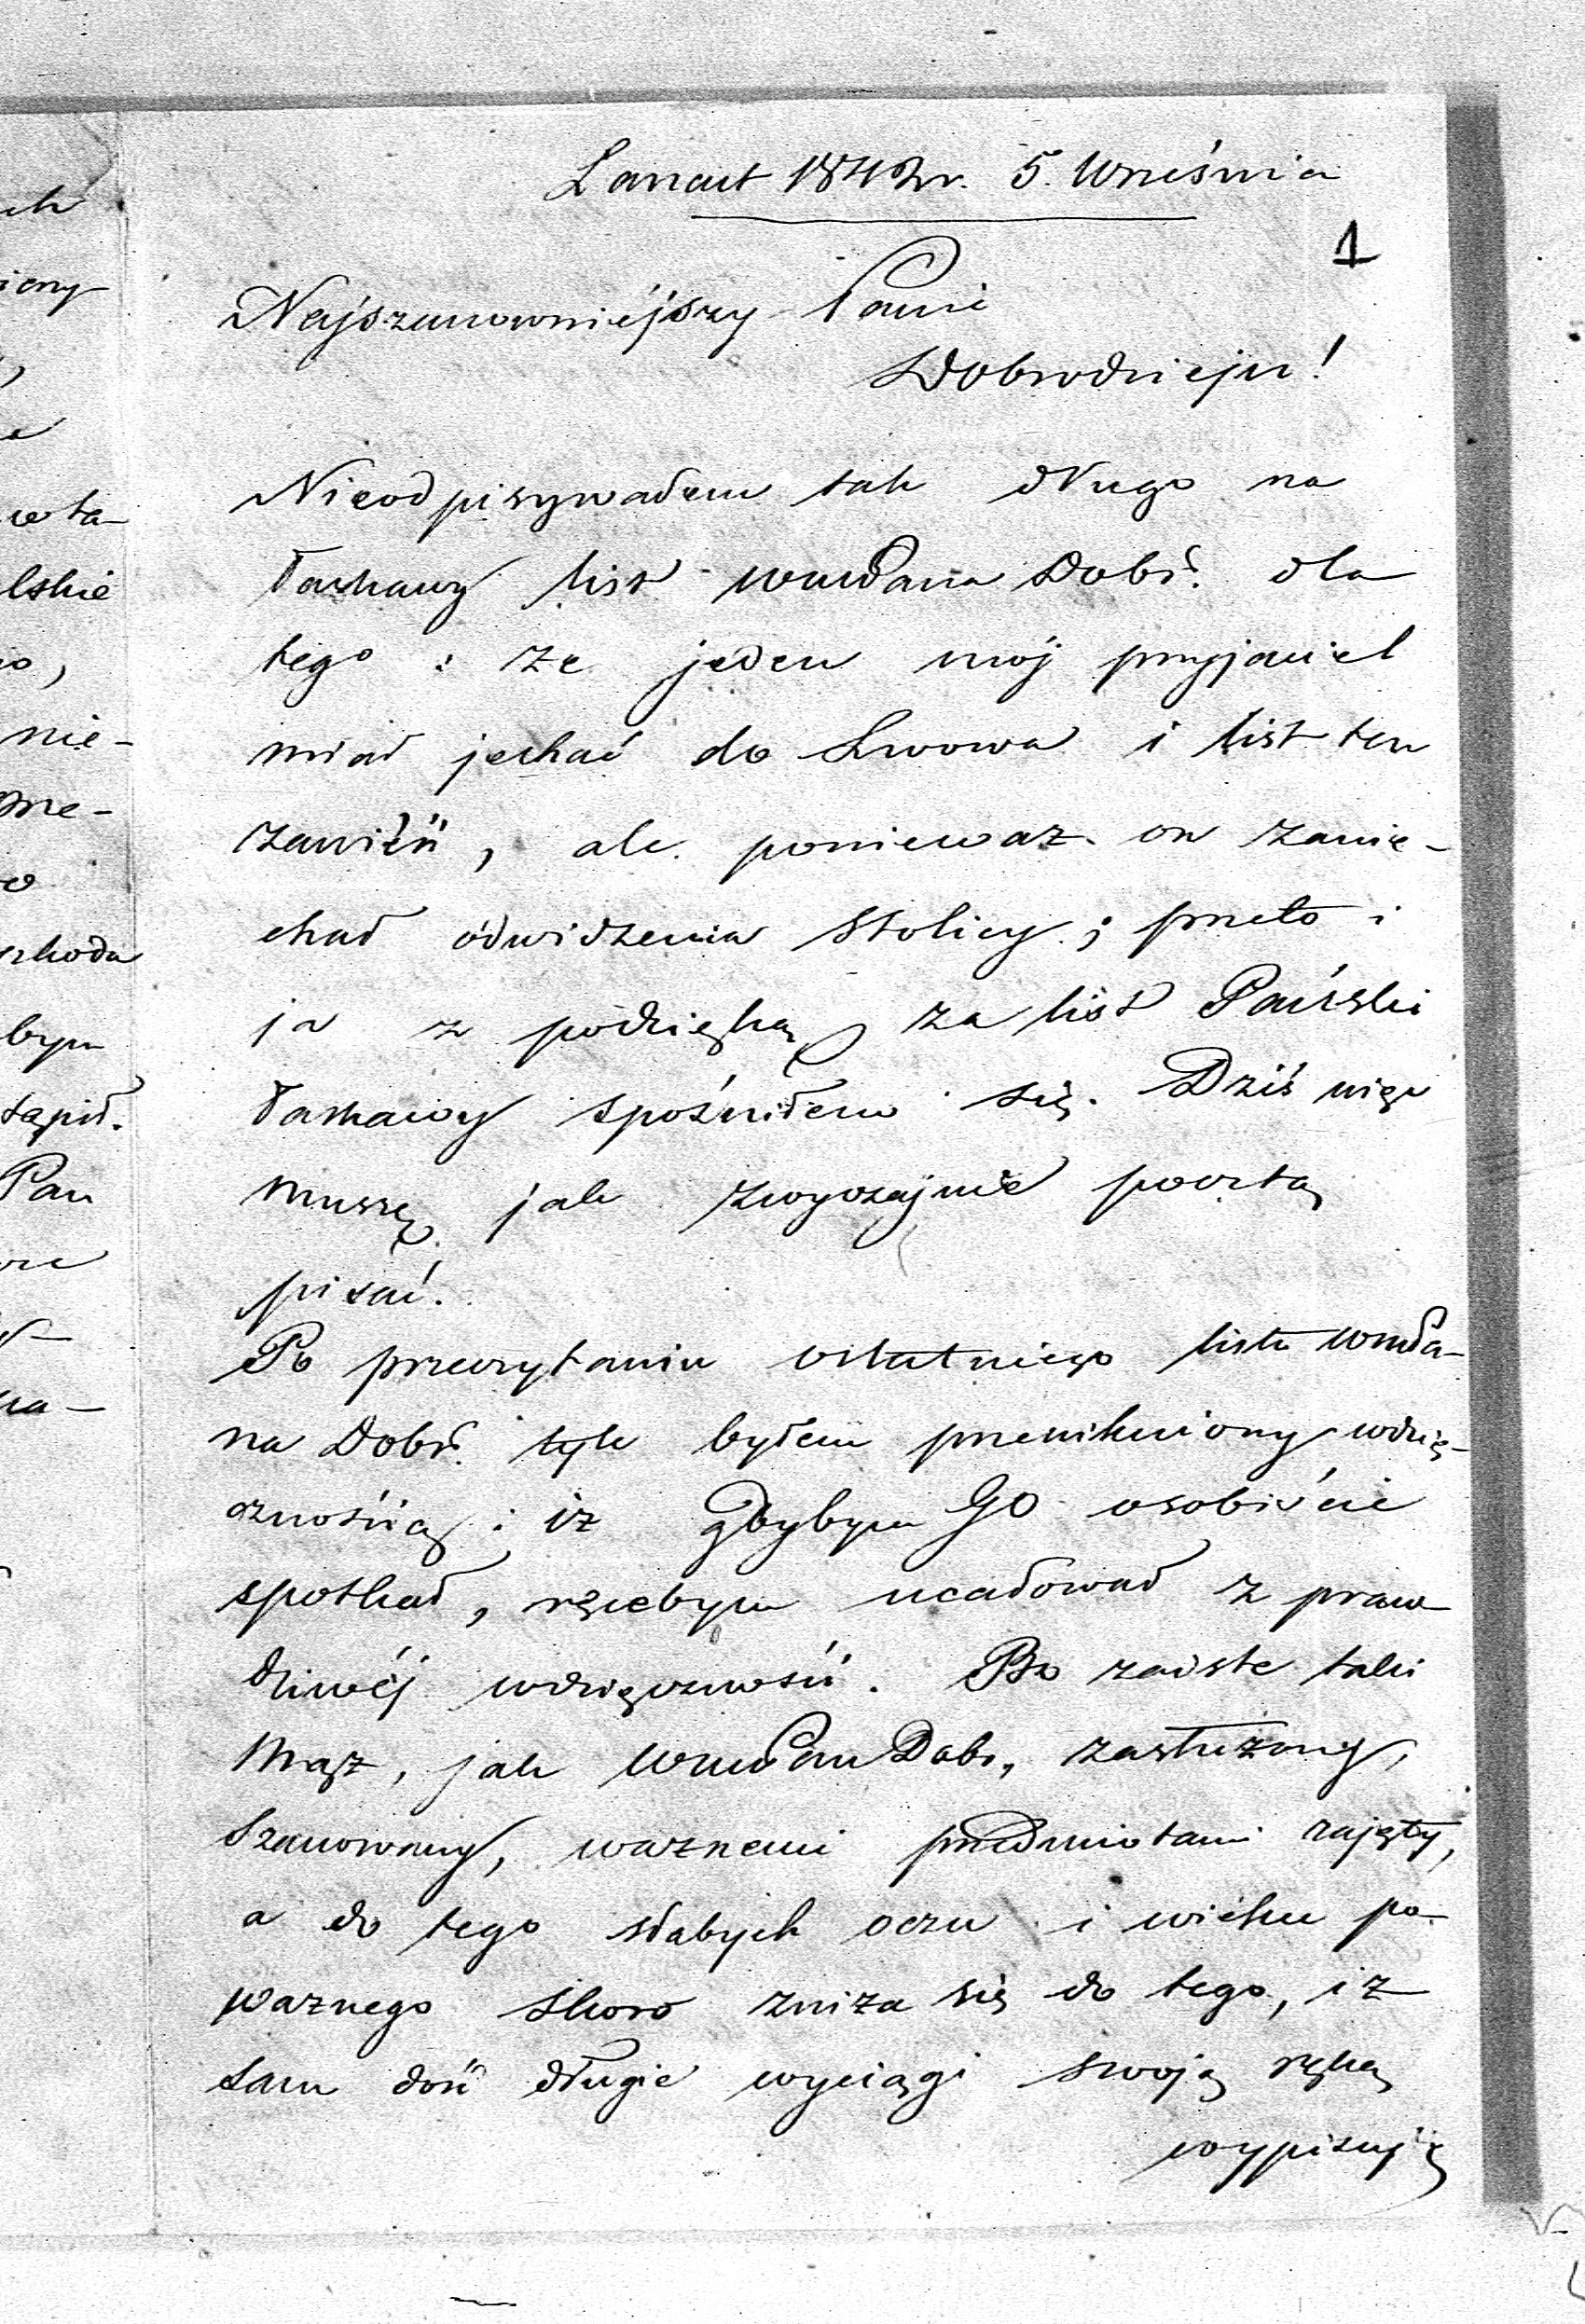 Lancut 1842r. 5. Września
1
Najszanowniéjszy Panie
Dobrodzieju!
Nieodpisywałem tak długo na
łaskawy list WmPana Dobr. dla
tego : że jeden mój przyjaciel
miał jechać do Lwowa i list ten
zawiéść, ale ponieważ on zanie-
chał odwidzenia stolicy ; przeto i
ja z podzięką za list Pański
łaskawy spóźniłem się. Dziś więc
muszę jak zwyczajnie pocztą
pisać.
Po przeczytaniu ostatniego listu WmPa-
na Dobr. tyle byłem przenikniony wdzię-
cznością : iż gdybym Go osobiście
spotkał, ręcebym ucałował z praw-
dziwéj wdzięczności. Bo zaiste taki
Mąż, jak WmPan Dobr., zasłużony,
szanowany, ważnemi przedmiotami zajęty,
a do tego słabych oczu i wieku po-
ważnego skoro zniża się do tego, iż
sam dość długie wyciągi swoją ręką
wypisuję